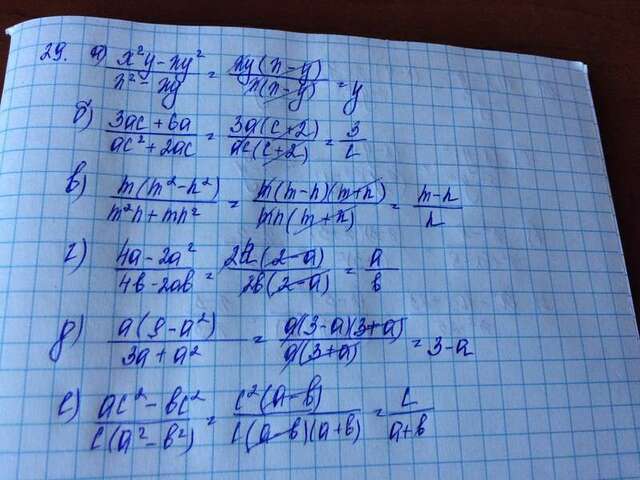 29. а) (x²y - xy²)/(x² - xy) = (xy(x - y))/(x(x - y)) = y
б) (3ac + 6a)/(ac² + 2ac) = (3a(c + 2))/(ac(c + 2)) = 3/c
в) (m(m² - n²))/(m²n + mn²) = (m(m - n)(m + n))/(mn(m + n)) = (m - n)/n
г) (4a - 2a²)/(4b - 2ab) = (2a(2 - a))/(2b(2 - a)) = a/b
д) (a(9 - a²))/(3a + a²) = (a(3 - a)(3 + a))/(a(3 + a)) = 3 - a
е) (ac² - bc²)/(c(a² - b²)) = (c²(a - b))/(c(a - b)(a + b)) = c/(a + b)